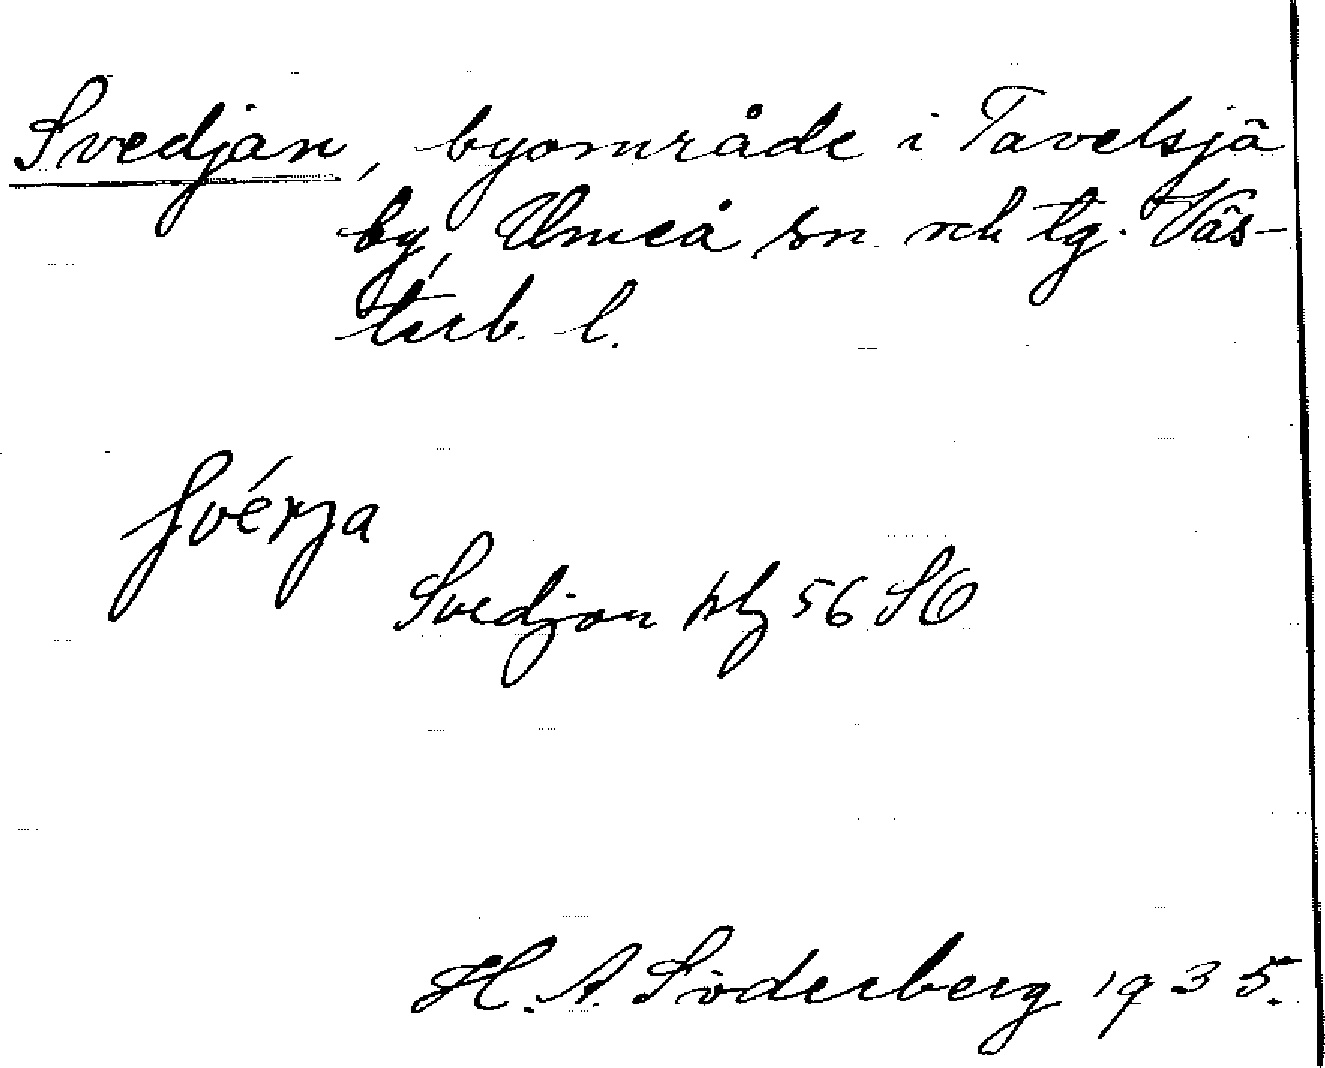 Svedjan, byområde i Tavelsjö
by, Umeå sn. och tg. Väs-
terb. l.
Svedjan kbl 56 SO
H. A. Söderberg 1935.